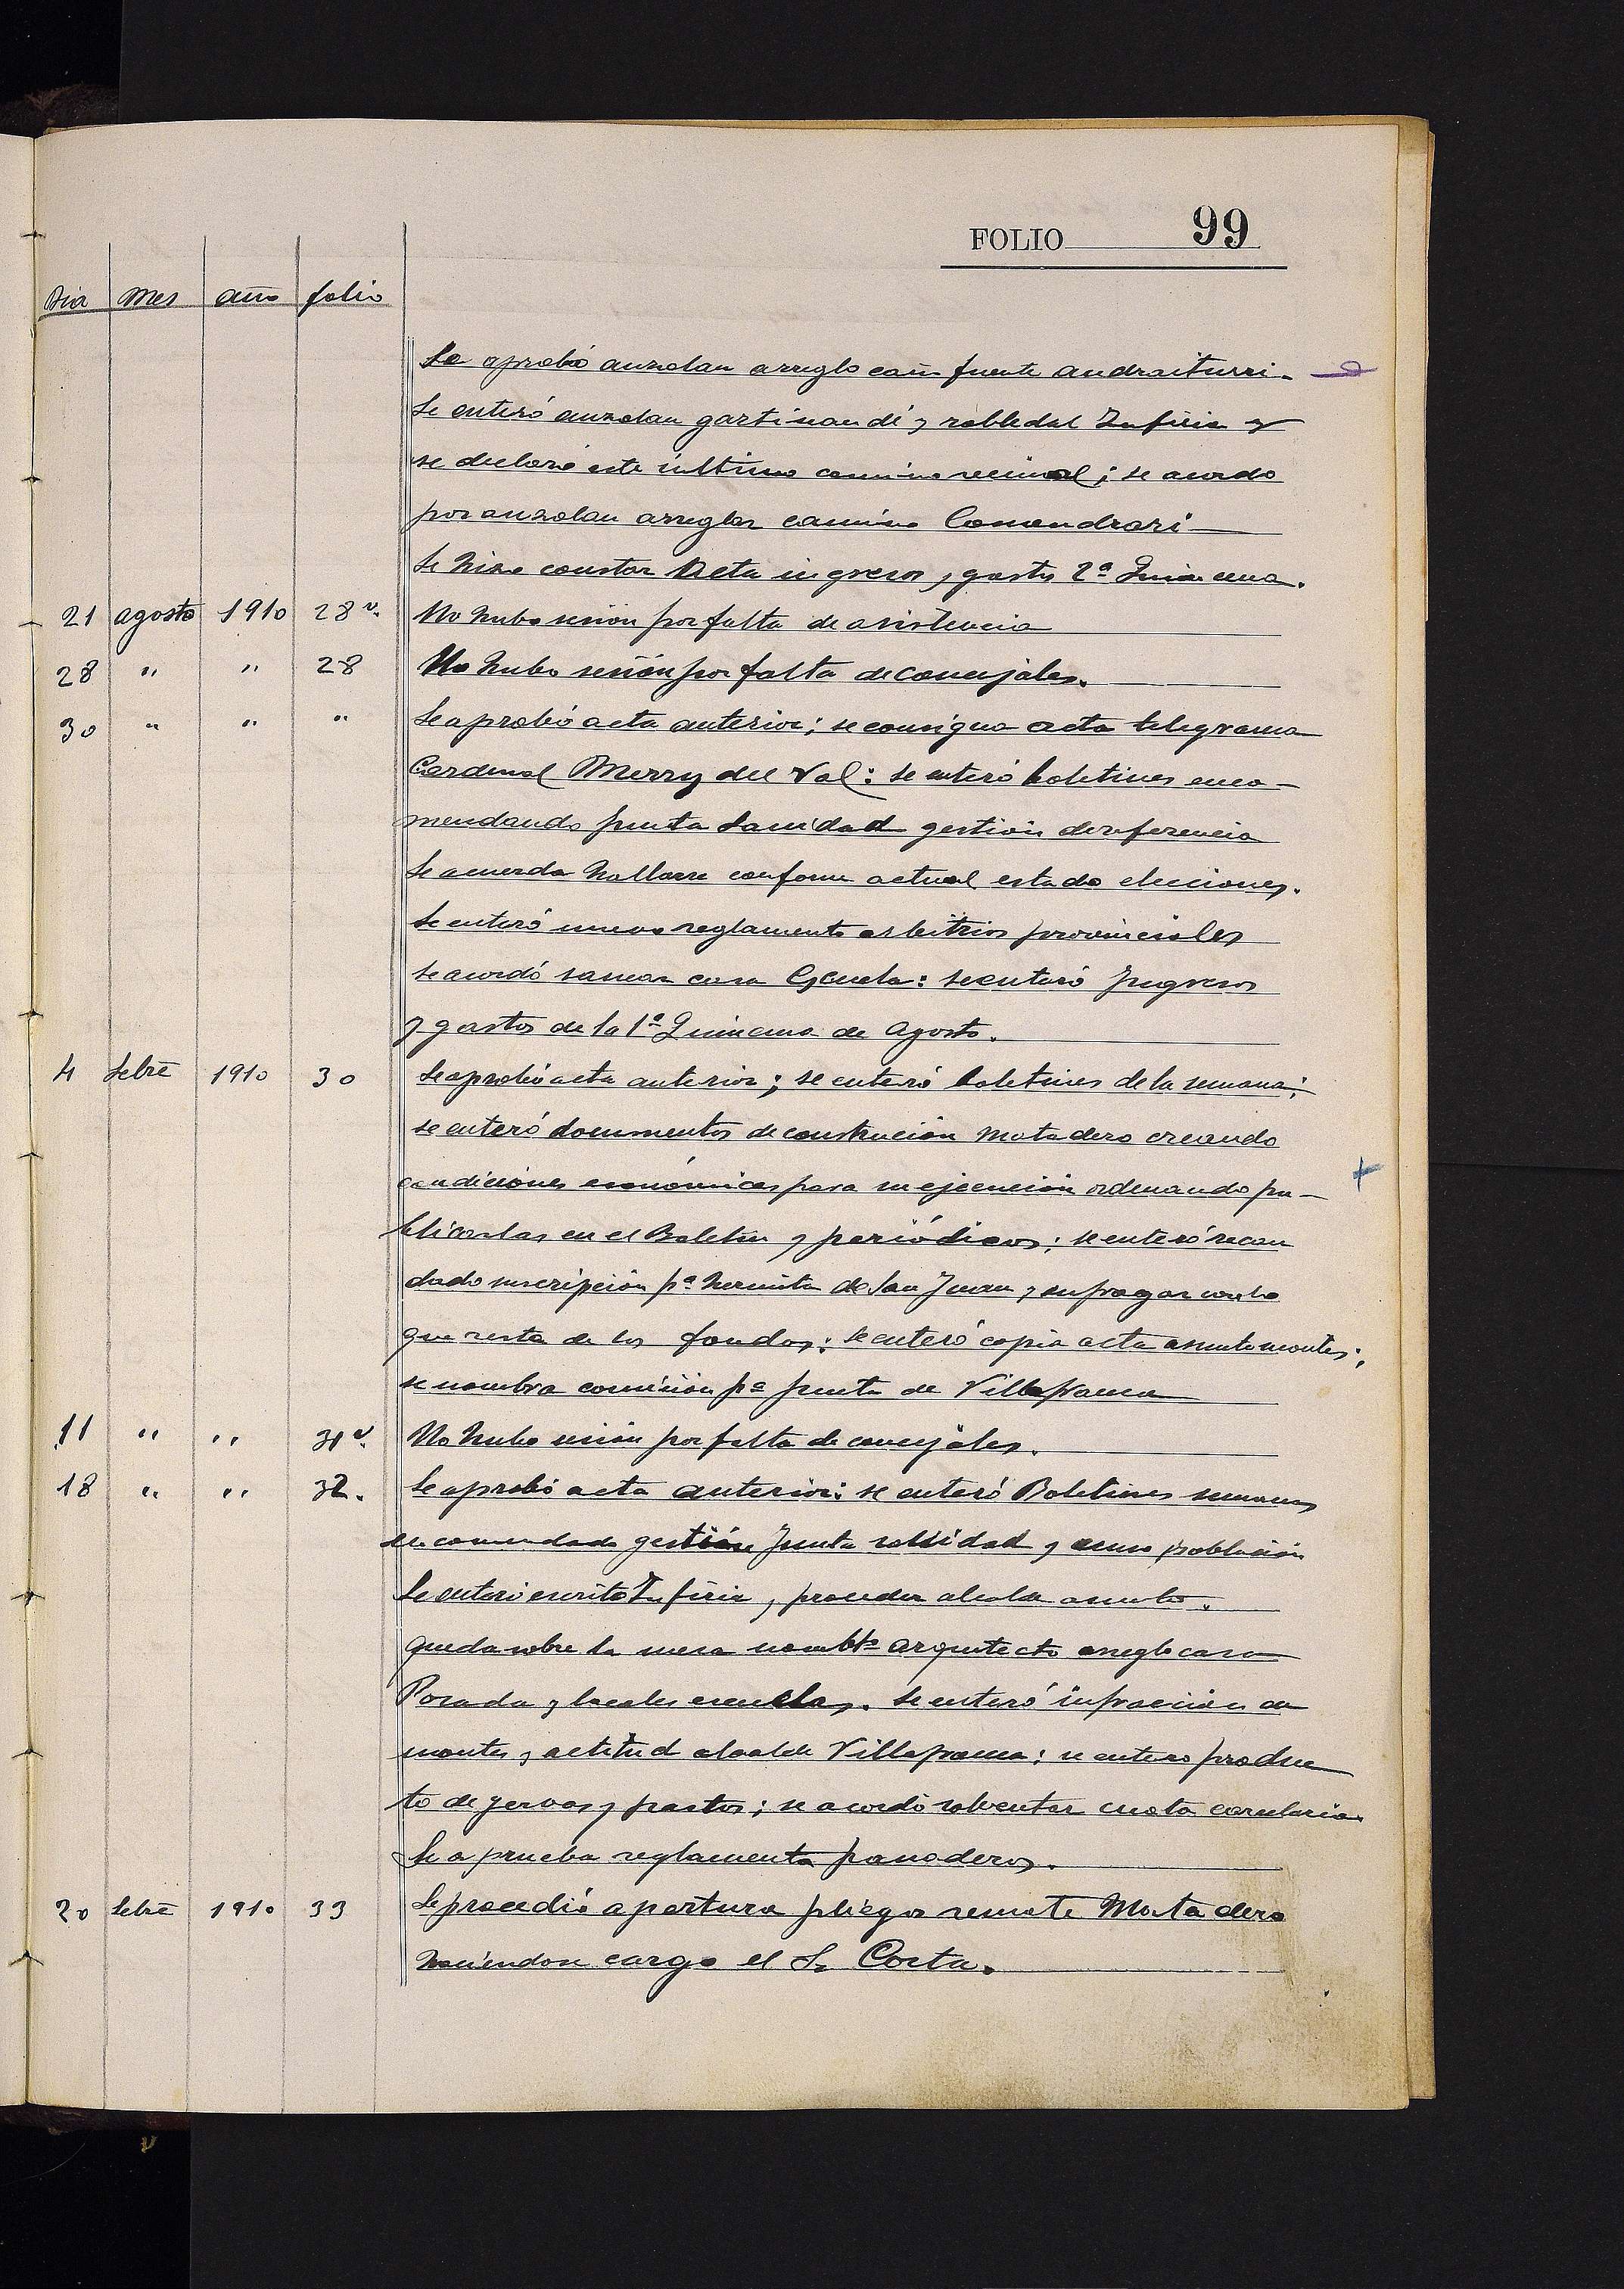 FOLIO 99
Dia mes año folio
Se aprobó auzolan arreglo cañ fuente andraiturri.
Se enteró auzolan gartinandi y robledal Infiria y
se declaró este último camino vecinal; se acordó
por auzolan arreglar camino Comendrari
Se hizo constar Acta ingresos y gastos 2ª Quincena.
21 agosto 1910 28 v. No hubo sesión por falta de asistencia
28 " " 28 No hubo sesión por falta de concejales.
30 " " " Se aprobó acta anterior; se consigna acta telegrama
Cardenal Merry del Val: se enteró boletines enco-
mendando junta Sanidad gestión de referencia
Se acuerda hallarse conforme actual estado elecciones.
Se enteró nuevo reglamento arbitrios provinciales
se acordó sanear casa Escuela: se enteró Ingresos
y gastos de la 1ª Quincena de Agosto.
4 Sebre 1910 30 Se aprobó acta anterior; se enteró boletines de la semana;
se enteró documentos de construcion matadero creando
condiciones económicas para su ejecución ordenando pu-
blicarlas en el Boletin y periódicos; se enteró recau
dado suscripción pª hermita de San Juan y sufragar con lo
que resta de los fondos: se enteró copia acta asunto montes;
se nombra comisión pª junta de Villafranca
11 " " 31 v. No hubo sesión por falta de concejales.
18 " " 32. Se aprobó acta anterior: se enteró Boletines semanas
encomendado gestión Junta sanidad y censo población
Se enteró escrito Infiria y proceder alcalde asunto.
queda sobre la mesa nombto arquitecto arreglo casa
Posada y locales escuelas. Se enteró infracción de
montes y actitud alcalde Villafranca: se enteró produc
to de yervas y pastos; se acordó solventar cuota carcelaria.
Se aprueba reglamento panaderos.
20 Sebre 1910 33 Se procedió apertura pliegos remate Matadero
haciéndose cargo el Sr Corta.